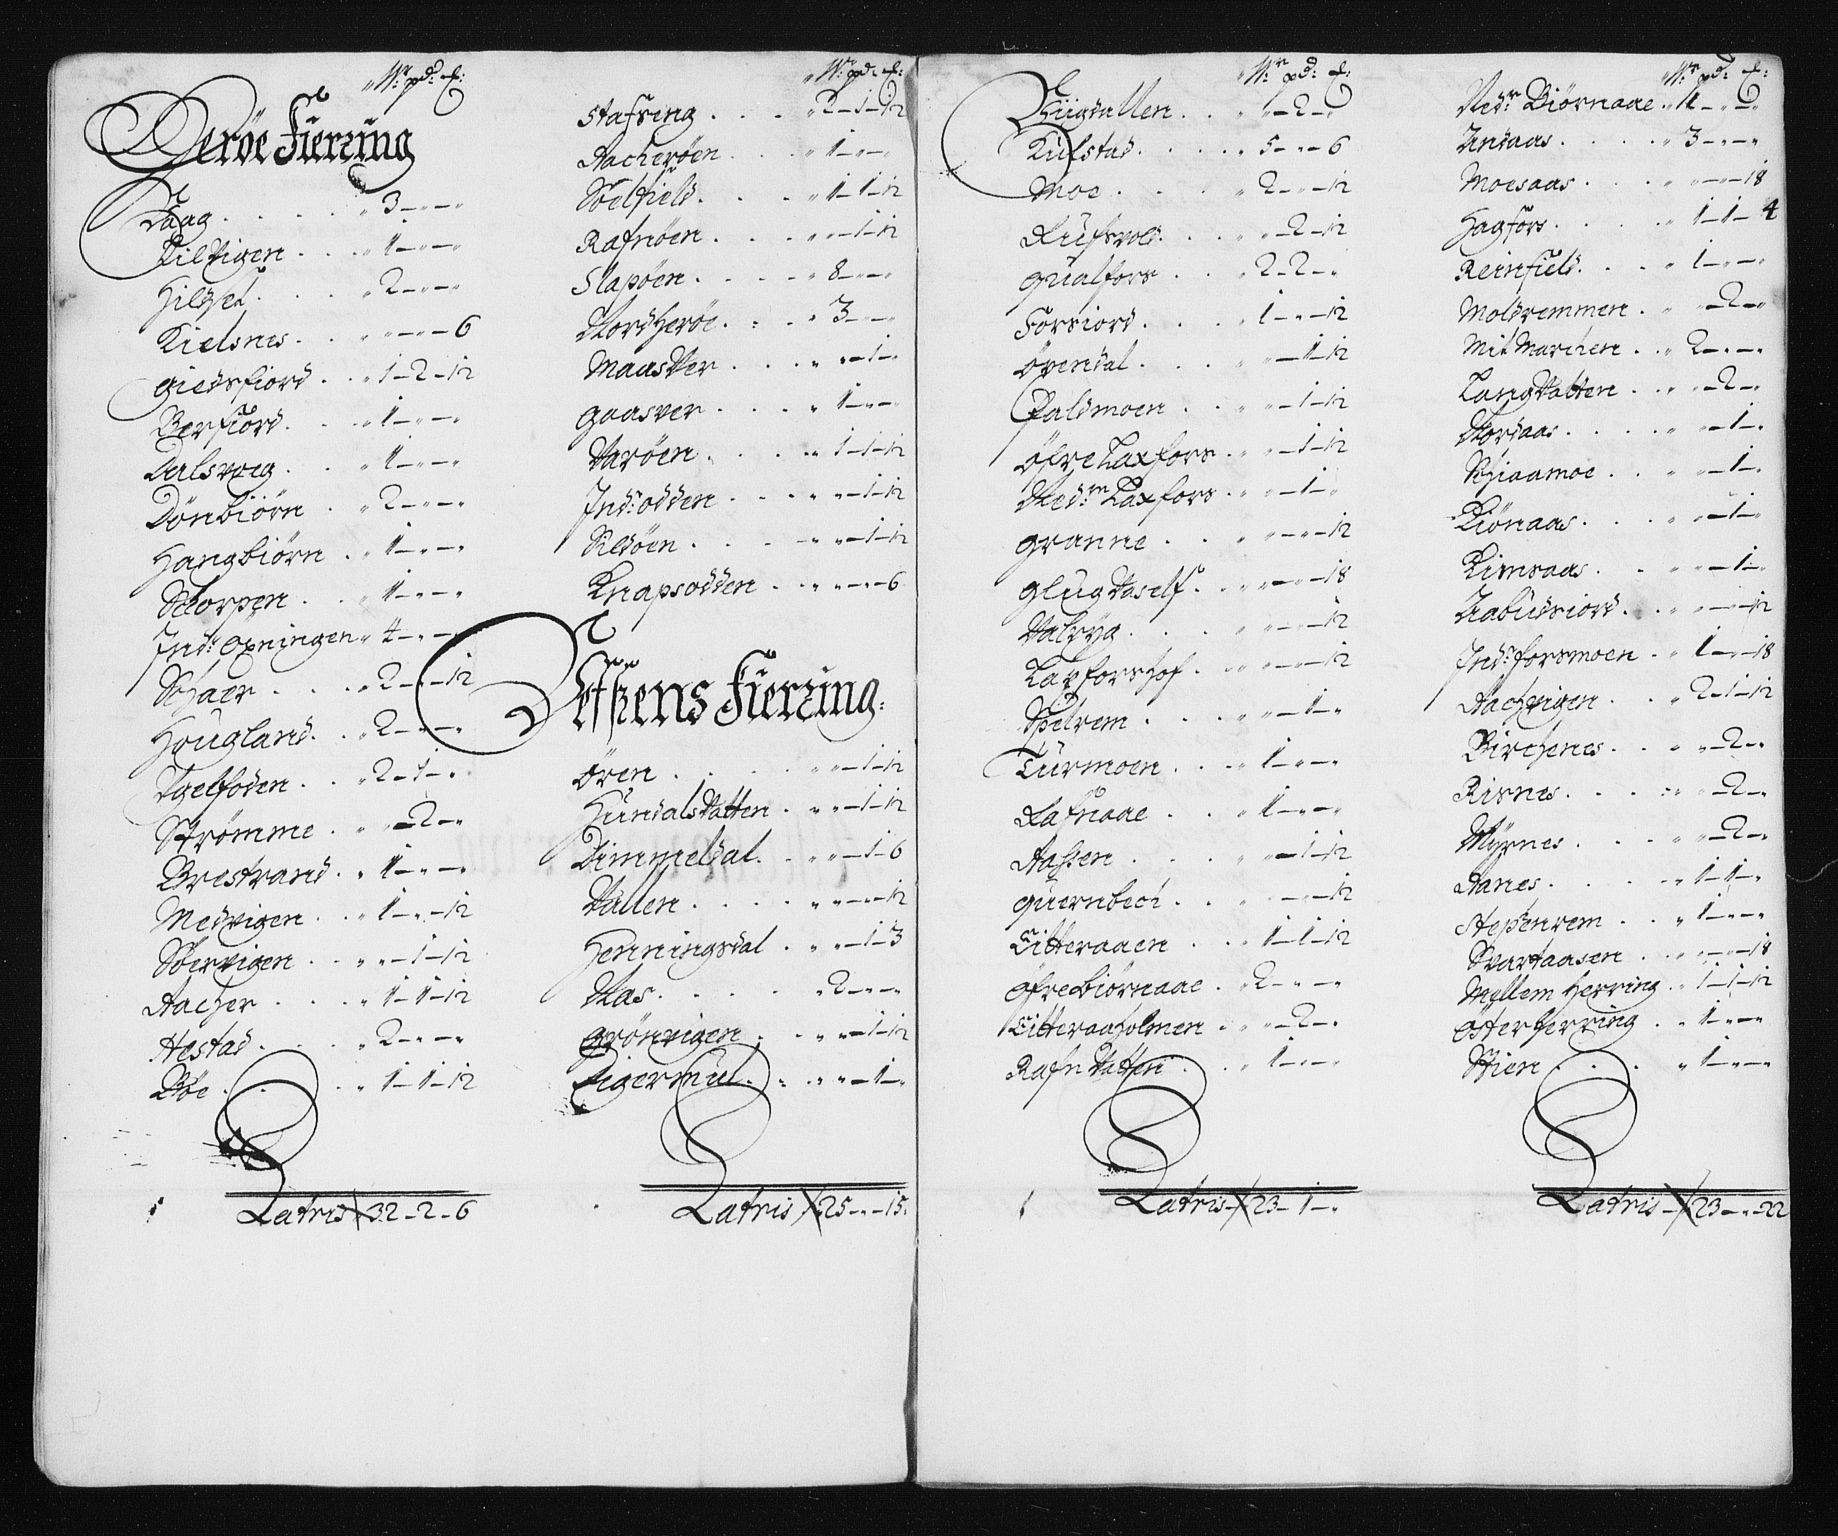 W: pd: ℔:
Herøe Fierring
Waag . . . . . „ 3 – „ – „
Kilvigen . . . „ 1 – „ – „
Hildset . . . . „ 2 – „ – „
Kielsnes . . . „ „ – „ – 6
Giedsfiord . . „ 1 – 2 – 12
Berfiord . . . „ 1 – „ – „
Dalsvog . . . „ 1 – „ – „
Dönbiörn . . „ 2 – „ – „
Hangbiörn . „ 1 – „ – „
Skorpen . . . „ 1 – „ – „
Ind: Öxningen „ 4 – „ – „
Schaer . . . . „ 2 – „ – 12
Hougland . . „ 2 – „ – „
Igelfoden . . „ 2 – 1 – „
Strømme . . „ „ – 2 – „
Brestrand . . „ 1 – „ – „
Medvigen . . „ 1 – „ – 12
Søervigen . . „ „ – 1 – 12
Aacher . . . . „ 1 – 1 – 12
Hestad . . . . „ 2 – „ – „
Bøe . . . . . „ 1 – 1 – 12
Latris 32 – 2 – 6
W: pd: ℔:
Stafseng . . . „ 2 – 1 – 12
Aacherøen . . . „ 1 – „ – „
Söelfield . . . „ 1 – 1 – 12
Rafnöen . . . „ „ – 1 – 12
Slapöen . . . . „ 8 – „ – „
Nordherøe . . . „ 3 – „ – „
Maasver . . . „ „ – 1 – „
Gaasver . . . „ 1 – „ – „
Varöen . . . . „ 1 – 1 – 12
Ind: odden . . . „ „ – 1 – 12
Sildöen . . . . „ „ – 1 – 12
Knapsodden . . „ „ – „ – 6
Vefszens Fierring:
Ören . . . . „ „ – 1 – 12
Hundalsvatten . „ „ – 1 – 12
Dimmeldal . . „ „ – 1 – 6
Vallen . . . . „ „ – „ – 12
Henningsdal . „ „ – 1 – 3
Aas . . . . „ 2 – „ – „
Grönvigen . . „ „ – 1 – 12
Eigermul . . „ „ – 1 – „
Latris 25 – „ – 15:
W: pd: ℔:
Hiigdallen . . „ „ – 2 – „
Kulstad . . . . „ 5 – „ – 6
Moe . . . . „ 2 – „ – 12
Kulsvold . . . „ „ – 2 – 12
Qualfors . . „ 2 – 2 – „
Forsiord . . . „ 1 – „ – 12
Öyendal . . . „ „ – 1 – 12
Paldmoen . . „ „ – 1 – 12
Öfre Laxfors . „ „ – 1 – 12
Nedre Laxfors . „ „ – 1 – „
Granne . . . „ „ – „ – 12
Glugvaself . „ „ – „ – 18
Valryg . . . . „ „ – „ – 12
Laxforshof . „ „ – „ – 12
Spelrem . . . „ „ – 1 – „
Turmoen . . „ 1 – „ – „
Rafnaae . . „ 1 – „ – „
Aaszen . . . . „ „ – 1 – 12
Quernbech . . „ „ – „ – 12
Litteraaen . . „ 1 – 1 – 12
Öfrebiörnaae . „ 2 – „ – „
Litteraaholmen . „ „ – 2 – „
Rafnvatten . . „ 1 – „ – „
Latris – 23 – 1 – „
W: pd: ℔:
Nedr Biörnaae . „ 4 – „ – „
Undaas . . . . „ 3 – „ – „
Moesaas . . . „ „ – „ – 18
Hagfors . . . . „ 1 – 1 – 4
Reinfield . . . „ 1 – „ – „
Moldremmen . „ „ – 2 – „
Mitmarchen . . „ 2 – „ – „
Langvatten . . „ „ – 2 – „
Nordaas . . . . „ „ – 1 – „
Schiaamoe . . „ „ – 1 – „
Kiönaas . . . „ „ – 1 – „
Kimsaas . . . „ „ – 1 – „
Aabudsiord . . „ „ – „ – 12
Indr forsmoen . „ 1 – „ – 18
Aachvigen . . „ 2 – 1 – 12
Birchenes . . „ „ – 2 – „
Risnes . . . . „ „ – 2 – „
Myrnes . . . „ „ – 2 – „
Aanes . . . . „ 1 – 1 – „
Steszenrem . . „ 1 – „ – „
Svartaasen . . „ „ – „ – 18
Mellem Herring . „ 1 – 1 – 12
Österherring . . „ 1 – „ – „
Stien . . . . „ 1 – „ – „
Latris – 23 – „ – 22